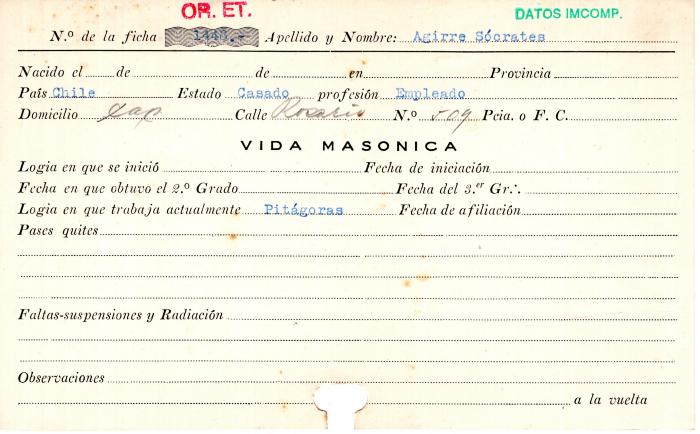 OR. ET. DATOS IMCOMP.
N.º de la ficha 1448.- Apellido y Nombre: Agirre Sócrates
Nacido el de de en Provincia
País Chile Estado Casado profesión Empleado
Domicilio Cap Calle Rosario N.º 509 Pcia. o F. C.
VIDA MASONICA
Logia en que se inició Fecha de iniciación
Fecha en que obtuvo el 2.º Grado Fecha del 3.er Gr∴
Logia en que trabaja actualmente Pitágoras Fecha de afiliación
Pases quites
Faltas-suspensiones y Radiación
Observaciones
a la vuelta